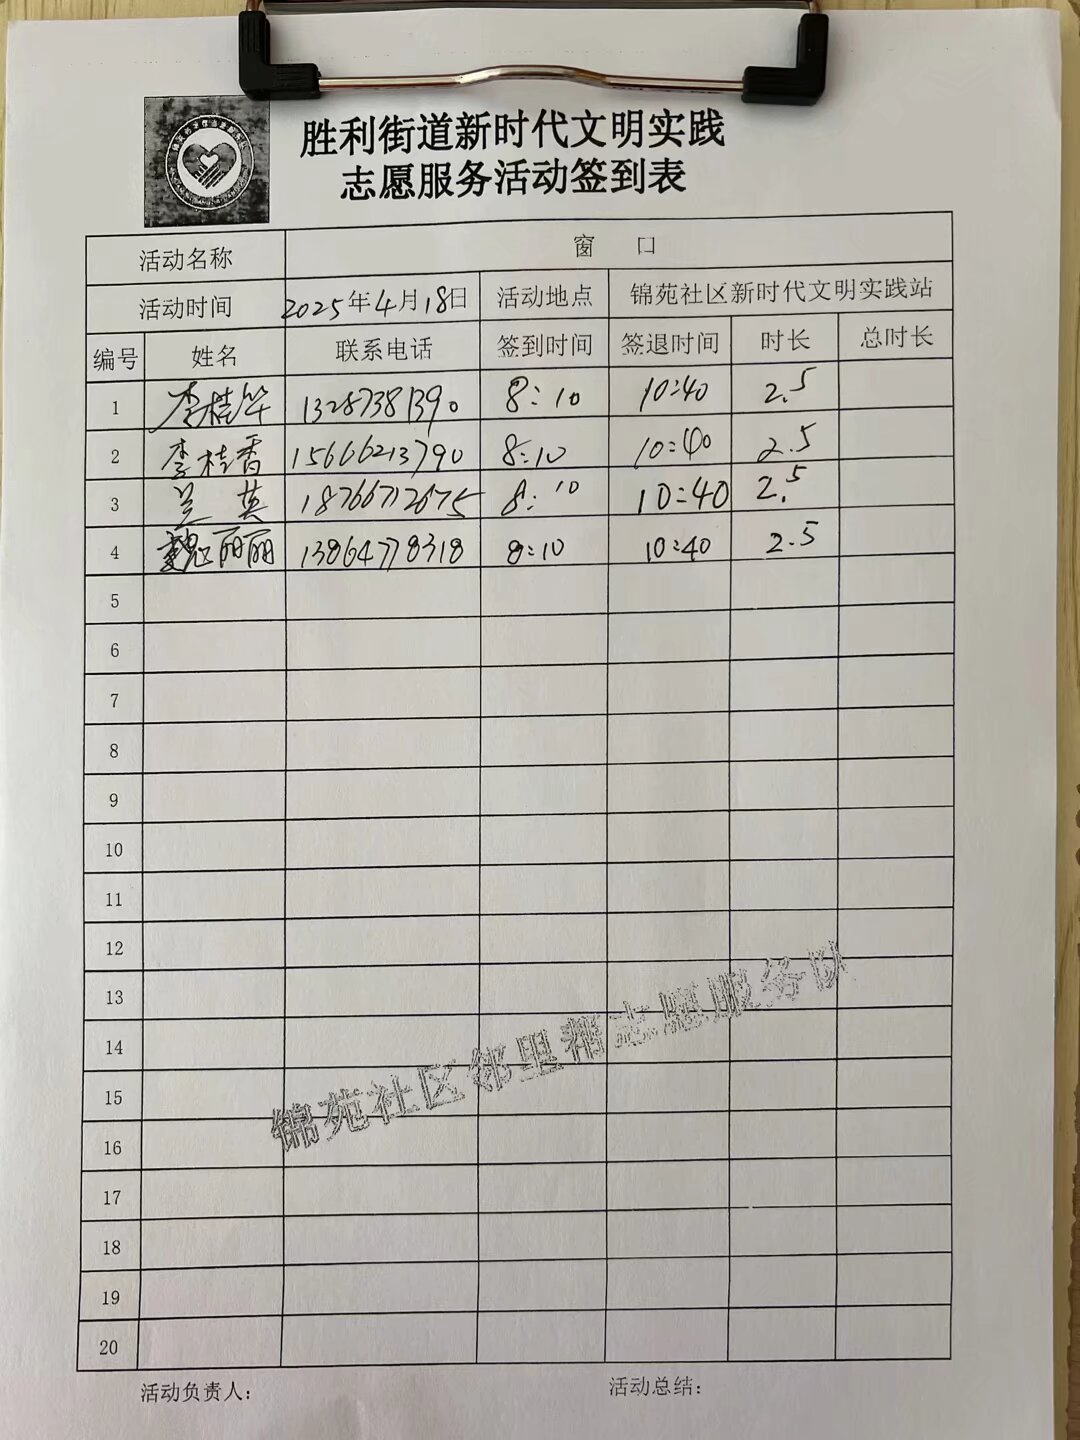 胜利街道新时代文明实践
志愿服务活动签到表
活动名称 窗 口
活动时间 2025年4月18日 活动地点 锦苑社区新时代文明实践站
编号 姓名 联系电话 签到时间 签退时间 时长 总时长
1 李桂华 13287381390 8:10 10:40 2.5
2 李桂香 15666213790 8:10 10:40 2.5
3 兰英 18766712675 8:10 10:40 2.5
4 魏丽丽 13864778318 8:10 10:40 2.5
5
6
7
8
9
10
11
12
13
14
15
16
17
18
19
20
锦苑社区邻里帮志愿服务队
活动负责人: 活动总结: